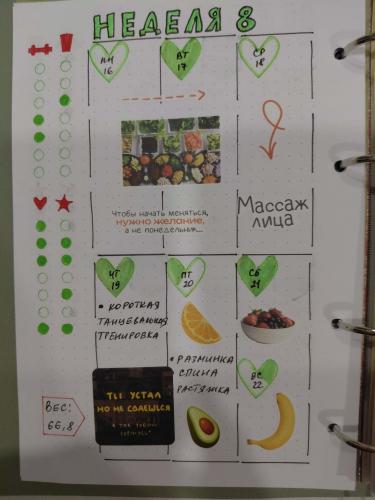 НЕДЕЛЯ 8
ПН
16
ВТ
17
СР
18
Чтобы начать меняться,
нужно желание,
а не понедельник...
Массаж
лица
ЧТ
19
ПТ
20
СБ
21
• КОРОТКАЯ
ТАНЦЕВАЛЬНАЯ
ТРЕНИРОВКА
• РАЗМИНКА
СПИНА
РАСТЯЖКА
ВС
22
ТЫ УСТАЛ
НО НЕ СДАЕШЬСЯ
ВЕС:
66,8